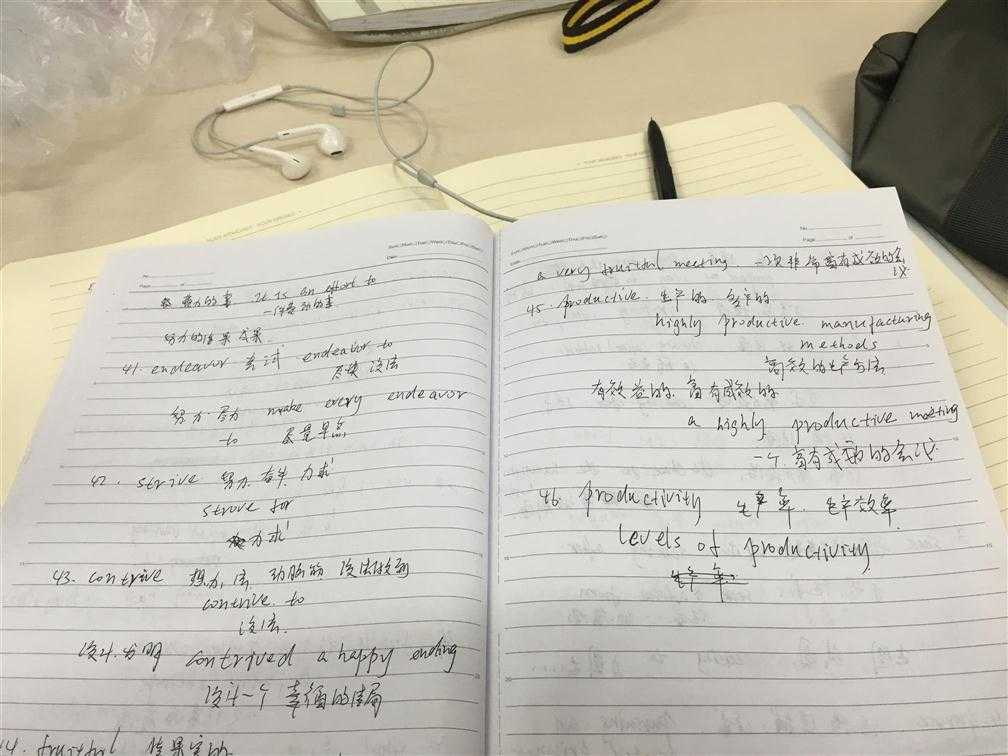 费力的事 It is an effort to
一件费劲的事
努力的结果 成果
41. endeavor 尝试 endeavor to
尽快 设法
努力 尽力 make every endeavor
to 尽量早点
42. strive 努力 奋斗 力求
strove for
力求
43. contrive 想办法 动脑筋 设法做到
contrive to
设法
设计 发明 contrived a happy ending
设计一个幸福的结局
44. fruitful 结果实的
No.
Page of
a very fruitful meeting 一次非常富有成效的会
议
45. productive 生产的 多产的
highly productive manufacturing
methods
高效的生产方法
有效益的 富有成效的
a highly productive meeting
一个富有成效的会议
46. productivity 生产率 生产效率
levels of productivity
生产率